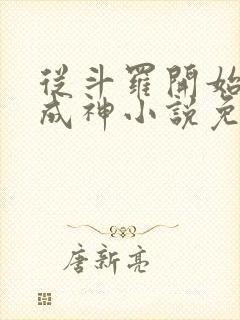 從斗羅開始
成神小説免
唐新亮